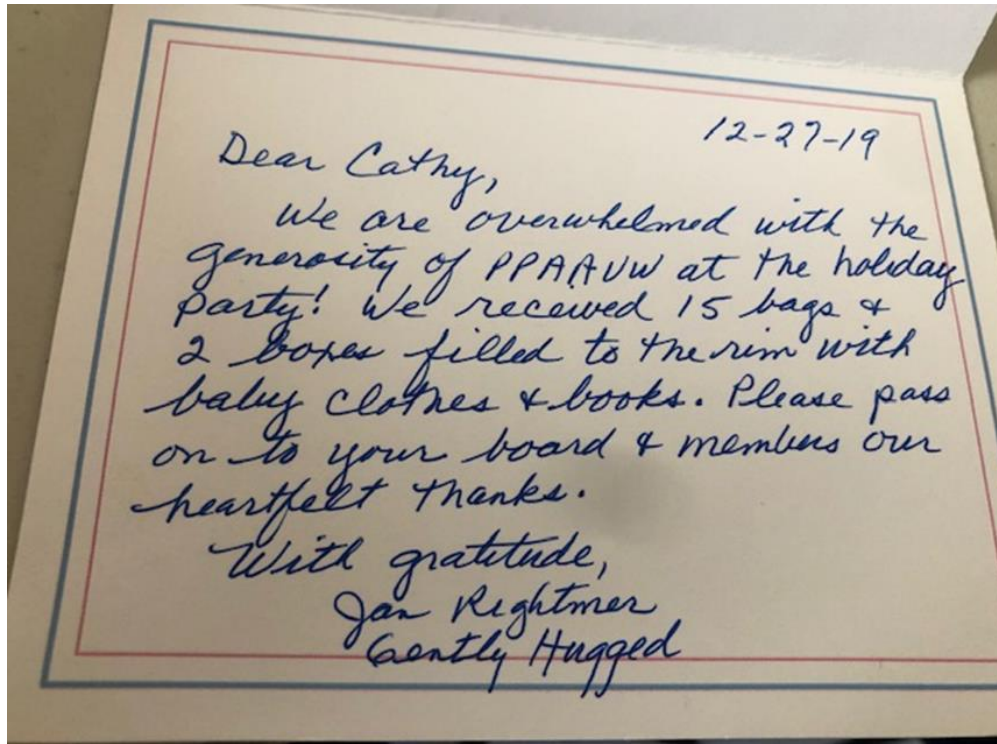 12-27-19
Dear Cathy,
We are overwhelmed with the
generosity of PPAAUW at the holiday
party! We received 15 bags &
2 boxes filled to the rim with
baby clothes & books. Please pass
on to your board & members our
heartfelt thanks.
With gratitude,
Jan Rightmer
Gently Hugged